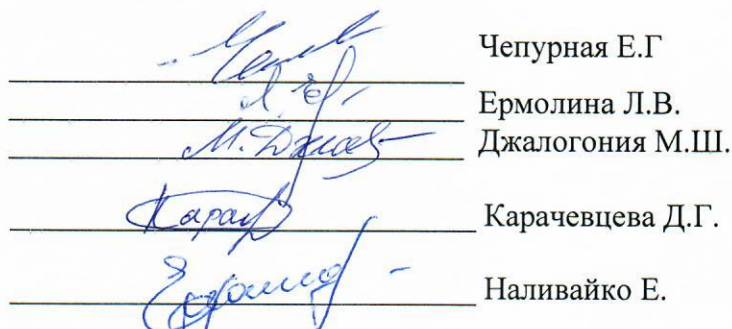 Чепурная Е.Г
Ермолина Л.В.
М. Джал Джалогония М.Ш.
Карачевцева Д.Г.
Наливайко Е.